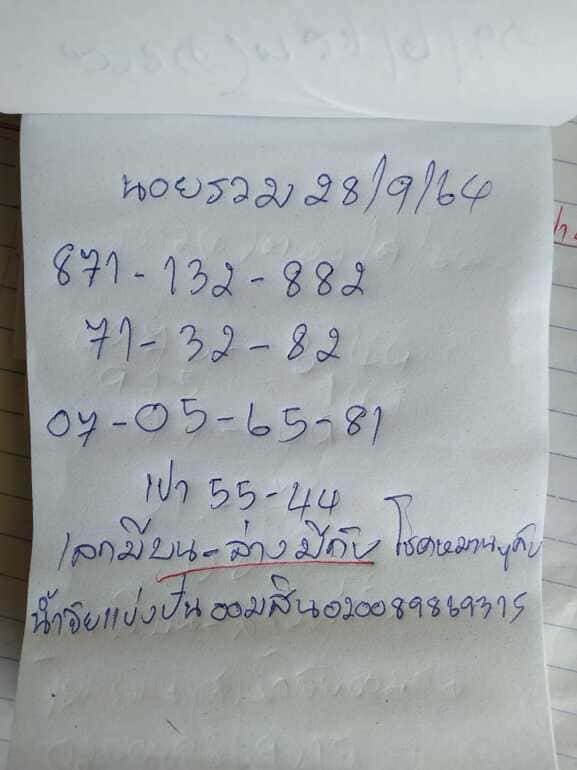 นอยรวม 28/9/64
871-132-882
71-32-82
07-05-65-81
เปา 55-44
เลกมีบน-ล่างมีกับ โชคหมานๆคับ
น้ำจัยแบ่งปั่น ออมสิน020089869315